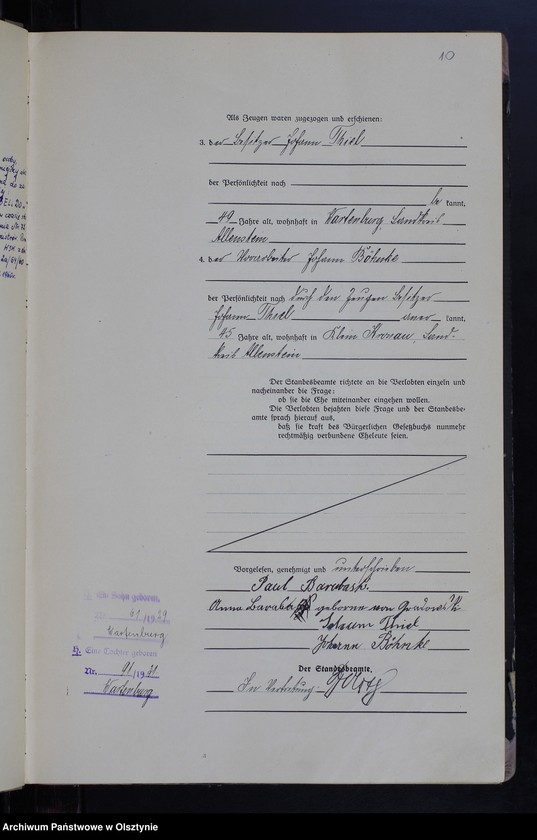 10
Als Zeugen waren zugezogen und erschienen:
3. der Besitzer Johann Thiel
der Persönlichkeit nach
be kannt,
49 Jahre alt, wohnhaft in Wartenburg, Landkreis
Allenstein
4. der Vorarbeiter Johann Böhnke
der Persönlichkeit nach durch den Zeugen Besitzer
Johann Thiel aner kannt,
45 Jahre alt, wohnhaft in Klein Kronau, Land-
kreis Allenstein
Der Standesbeamte richtete an die Verlobten einzeln und
nacheinander die Frage:
ob sie die Ehe miteinander eingehen wollen.
Die Verlobten bejahten diese Frage und der Standesbe-
amte sprach hierauf aus,
daß sie kraft des Bürgerlichen Gesetzbuchs nunmehr
rechtmäßig verbundene Eheleute seien.
Vorgelesen, genehmigt und unterschrieben
Paul Barabasch.
Anna geborene von
Johann Thiel
Johann Böhnke
Der Standesbeamte.
In Vertretung:
Ein Sohn geboren
Nr. 61/1929
Wartenburg
2. Eine Tochter geboren
Nr. 91/1931
Wartenburg
Archiwum Państwowe w Olsztynie